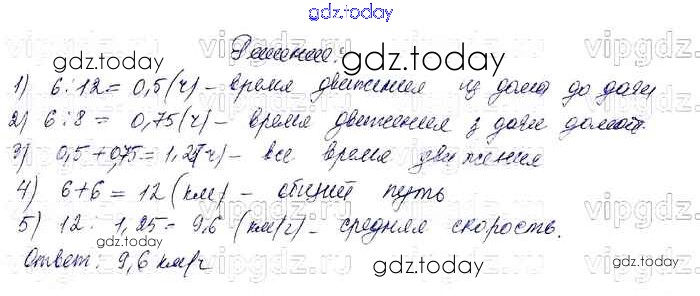 gdz.today
Решение:
gdz.today gdz.today
1) 6 : 12 = 0,5 (ч) - время движения из дома до дачи
2) 6 : 8 = 0,75 (ч) - время движения з дачи домой.
3) 0,5 + 0,75 = 1,25 (ч) - все время движения
4) 6 + 6 = 12 (км) - общий путь
5) 12 : 1,25 = 9,6 (км/ч) - средняя скорость.
gdz.today gdz.today
Ответ: 9,6 км/ч
gdz.today